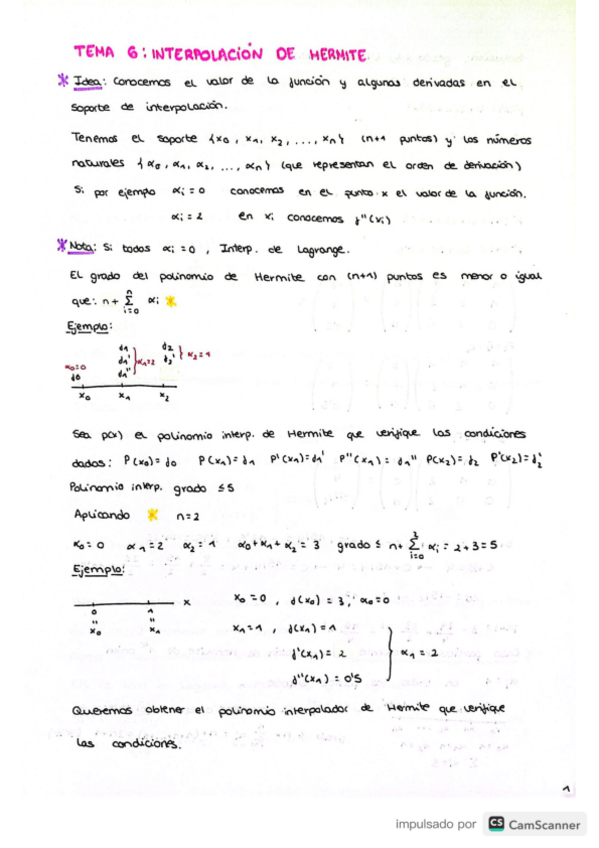 TEMA 6: INTERPOLACIÓN DE HERMITE
* Idea: Conocemos el valor de la función y algunas derivadas en el
soporte de interpolación.
Tenemos el soporte {x0, x1, x2, ..., xn} (n+1 puntos) y los números
naturales {α0, α1, α2, ..., αn} (que representan el orden de derivación)
Si por ejemplo αi = 0 conocemos en el punto x el valor de la función.
αi = 2 en xi conocemos f''(xi)
* Nota: Si todos αi = 0, Interp. de Lagrange.
El grado del polinomio de Hermite con (n+1) puntos es menor o igual
que: n + Σ(i=0, n) αi *
Ejemplo:
f1 f2
f1' } α1=2 f2' } α2=1
α0=0 f1''
f0
x0 x1 x2
Sea p(x) el polinomio interp. de Hermite que verifique las condiciones
dadas: P(x0) = f0 P(x1) = f1 P'(x1) = f1' P''(x1) = f1'' P(x2) = f2 P'(x2) = f2'
Polinomio interp. grado ≤ 5
Aplicando * n=2
α0 = 0 α1 = 2 α2 = 1 α0+α1+α2 = 3 grado ≤ n + Σ(i=0, 3) αi = 2+3 = 5
Ejemplo:
x0 = 0, f(x0) = 3, α0 = 0
0 1 x
" "
x0 x1
x1 = 1, f(x1) = 1
f'(x1) = 2 } α1 = 2
f''(x1) = 0'5
Queremos obtener el polinomio interpolador de Hermite que verifique
las condiciones.
1
impulsado por CS CamScanner